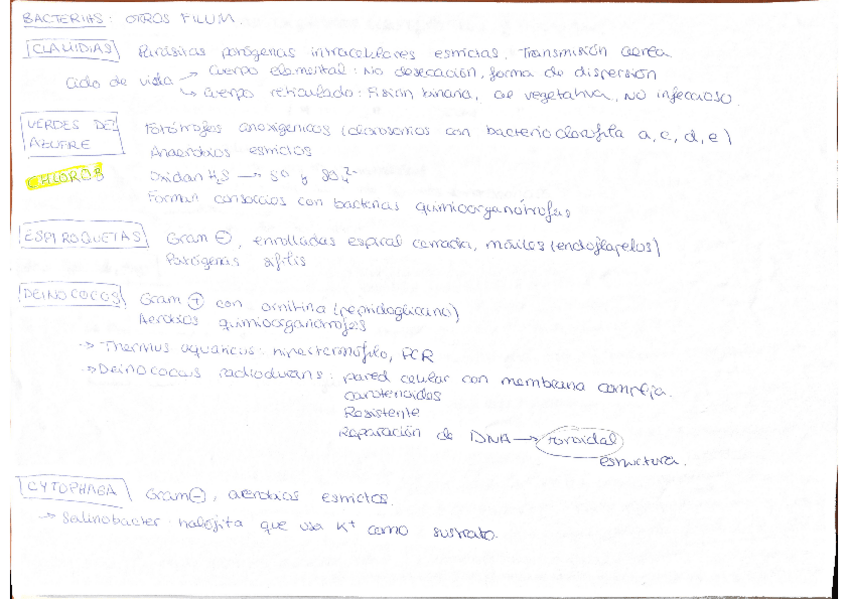 BACTERIAS: OTROS FILUM.
CLAMIDIAS Parásitas patógenas intracelulares estrictas. Transmisión aerea
Ciclo de vida → Cuerpo elemental: No desecación, forma de dispersión
↳ Cuerpo reticulado: Fisión binaria, cel vegetativa, NO infeccioso.
VERDES DEL AZUFRE Fotótrofos anoxigénicos (clorosomas con bacterioclorofila a, c, d, e)
Anaerobios estrictos
CHLOROB Oxidan H₂S → S⁰ y SO₄²⁻
Forman consorcios con bacterias quimioorganótrofas
ESPIROQUETAS Gram ⊖, enrolladas espiral cerrada, móviles (endoflagelos)
Patógenas sífilis
DEINOCOCOS Gram ⊕ con ornitina (peptidoglicano)
Aerobios quimioorganotrofos
→ Thermus aquaticus: hipertermófilo, PCR
→ Deinococcus radiodurans: pared celular con membrana compleja.
carotenoides
Resistente
Reparación de DNA → toroidal
estructura.
CYTOPHAGA Gram ⊖, aerobias estrictos.
→ Salinobacter: halófita que usa K⁺ como sustrato.